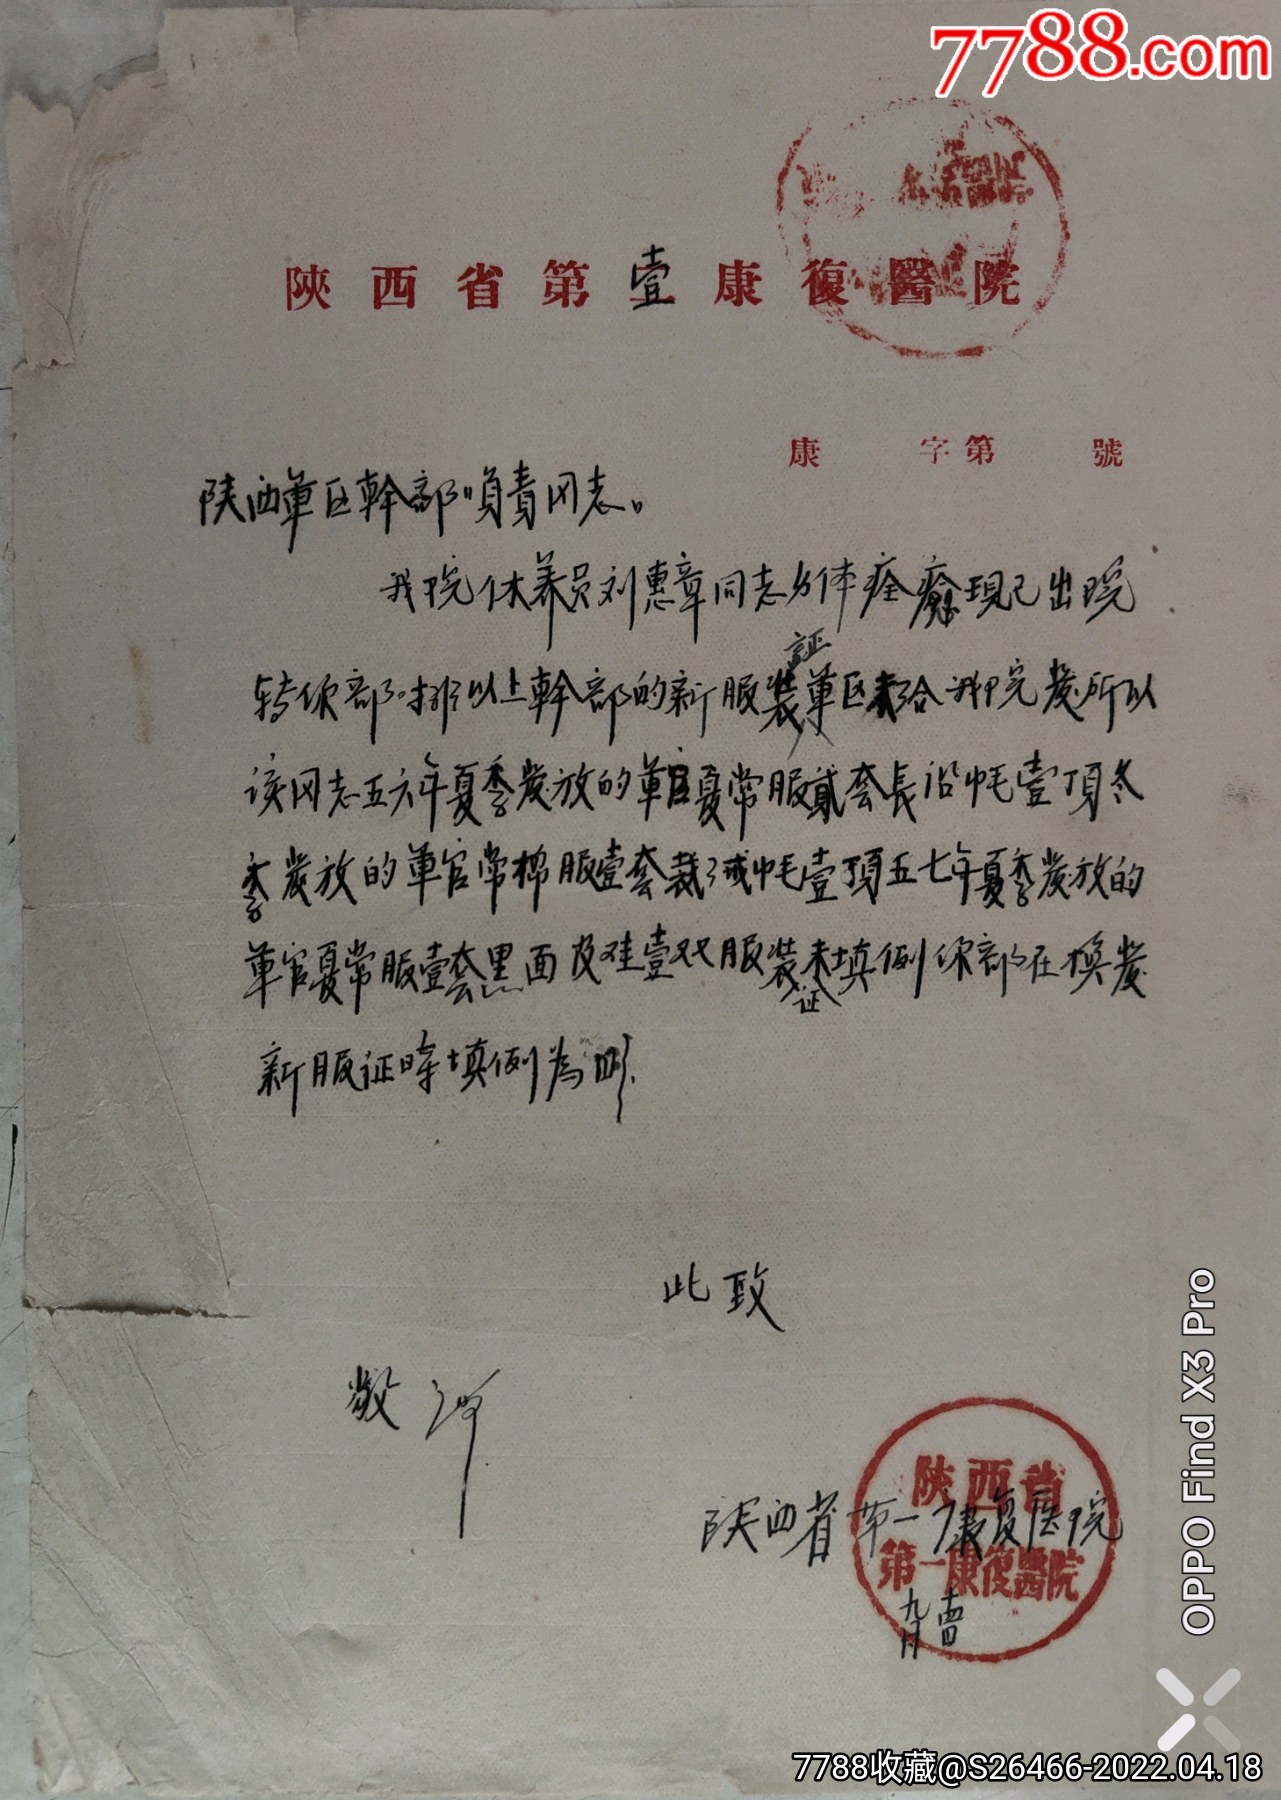 7788.com
陝西省第壹康復醫院
康 字第 號
陕西軍区幹部负責同志。
我院休养员刘惠章同志身体痊癒现已出院
转你部排以上幹部的新服装証軍区未给我院發所以
该同志五六年夏季發放的軍官夏常服貳套長沿帽壹頂冬
季發放的軍官常棉服壹套裁绒帽壹頂五七年夏季發放的
軍官夏常服壹套黑面皮鞋壹双服装证未填例你部在换發
新服证時填例為盼
此致
敬礼
陕西省第一康复医院
陕西省
第一康復醫院
九月
OPPO Find X3 Pro
7788收藏@S26466-2022.04.18